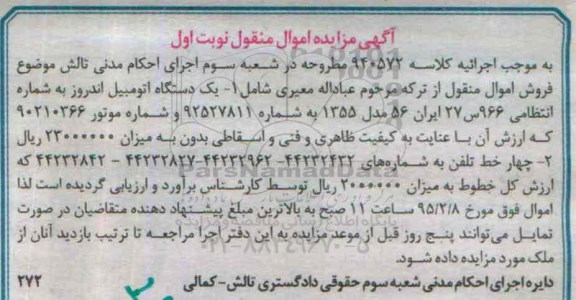 آگهی مزایده اموال منقول نوبت اول
به موجب اجرائیه کلاسه ۹۴۰۵۷۲ مطروحه در شعبه سوم اجرای احکام مدنی تالش موضوع
فروش اموال منقول از ترکه مرحوم عباداله معیری شامل ۱- یک دستگاه اتومبیل اندروز به شماره
انتظامی ۹۶۶س۲۷ ایران ۵۶ مدل ۱۳۵۵ به شماره ۹۲۵۲۷۸۱۱ و شماره موتور ۹۰۲۱۰۳۶۶
که ارزش آن با عنایت به کیفیت ظاهری و فنی و اسقاطی بدون به میزان ۲۳۰۰۰۰۰۰ ریال
۲- چهار خط تلفن به شماره‌های ۴۴۲۳۲۴۳۲-۴۴۲۳۲۹۶۲-۴۴۲۳۲۸۲۷ - ۴۴۲۳۲۸۴۲ که
ارزش کل خطوط به میزان ۲۰۰۰۰۰۰ ریال توسط کارشناس برآورد و ارزیابی گردیده است لذا
اموال فوق مورخ ۹۵/۲/۸ ساعت ۱۱ صبح به بالاترین مبلغ پیشنهاد دهنده متقاضیان در صورت
تمایل می‌توانند پنج روز قبل از موعد مزایده به این دفتر اجرا مراجعه تا ترتیب بازدید آنان از
ملک مورد مزایده داده شود.
دایره اجرای احکام مدنی شعبه سوم حقوقی دادگستری تالش- کمالی ۲۷۲
ParsNamadData
۰۲۱-۸۸۳۴۹۶۷۰-۵